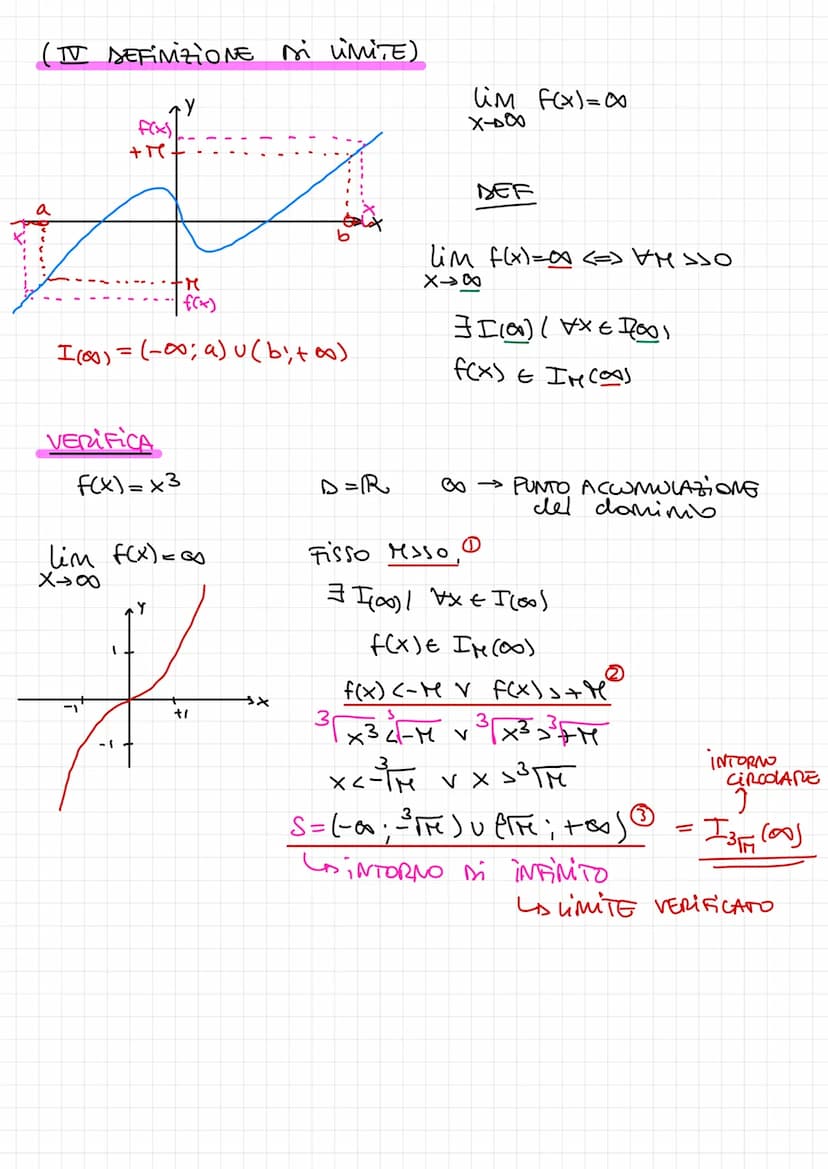 (IV DEFINIZIONE DI LIMITE)
lim f(x)=∞
x→∞
y
f(x)
+M
a
x
b
x
x
-M
f(x)
DEF
lim f(x)=∞ <=> ∀M>>0
x→∞
∃I(∞) / ∀x ∈ I(∞),
f(x) ∈ IM(∞)
I(∞) = (-∞; a) ∪ (b; +∞)
VERIFICA
f(x) = x³
D = ℝ ∞ → PUNTO ACCUMULAZIONE
del dominio
lim f(x) = ∞
x→∞
y
1
-1
+1
x
-1
FISSO M>>0, ①
∃ I(∞) / ∀x ∈ I(∞)
f(x) ∈ IM(∞)
f(x) < -M ∨ f(x) > +M ②
³√x³ < ³√-M ∨ ³√x³ > ³√+M
x < -³√M ∨ x > ³√M
S = (-∞; -³√M) ∪ (³√M; +∞) ③ = I³√M (∞)
INTORNO
CIRCOLARE
↳ INTORNO DI INFINITO
↳ LIMITE VERIFICATO